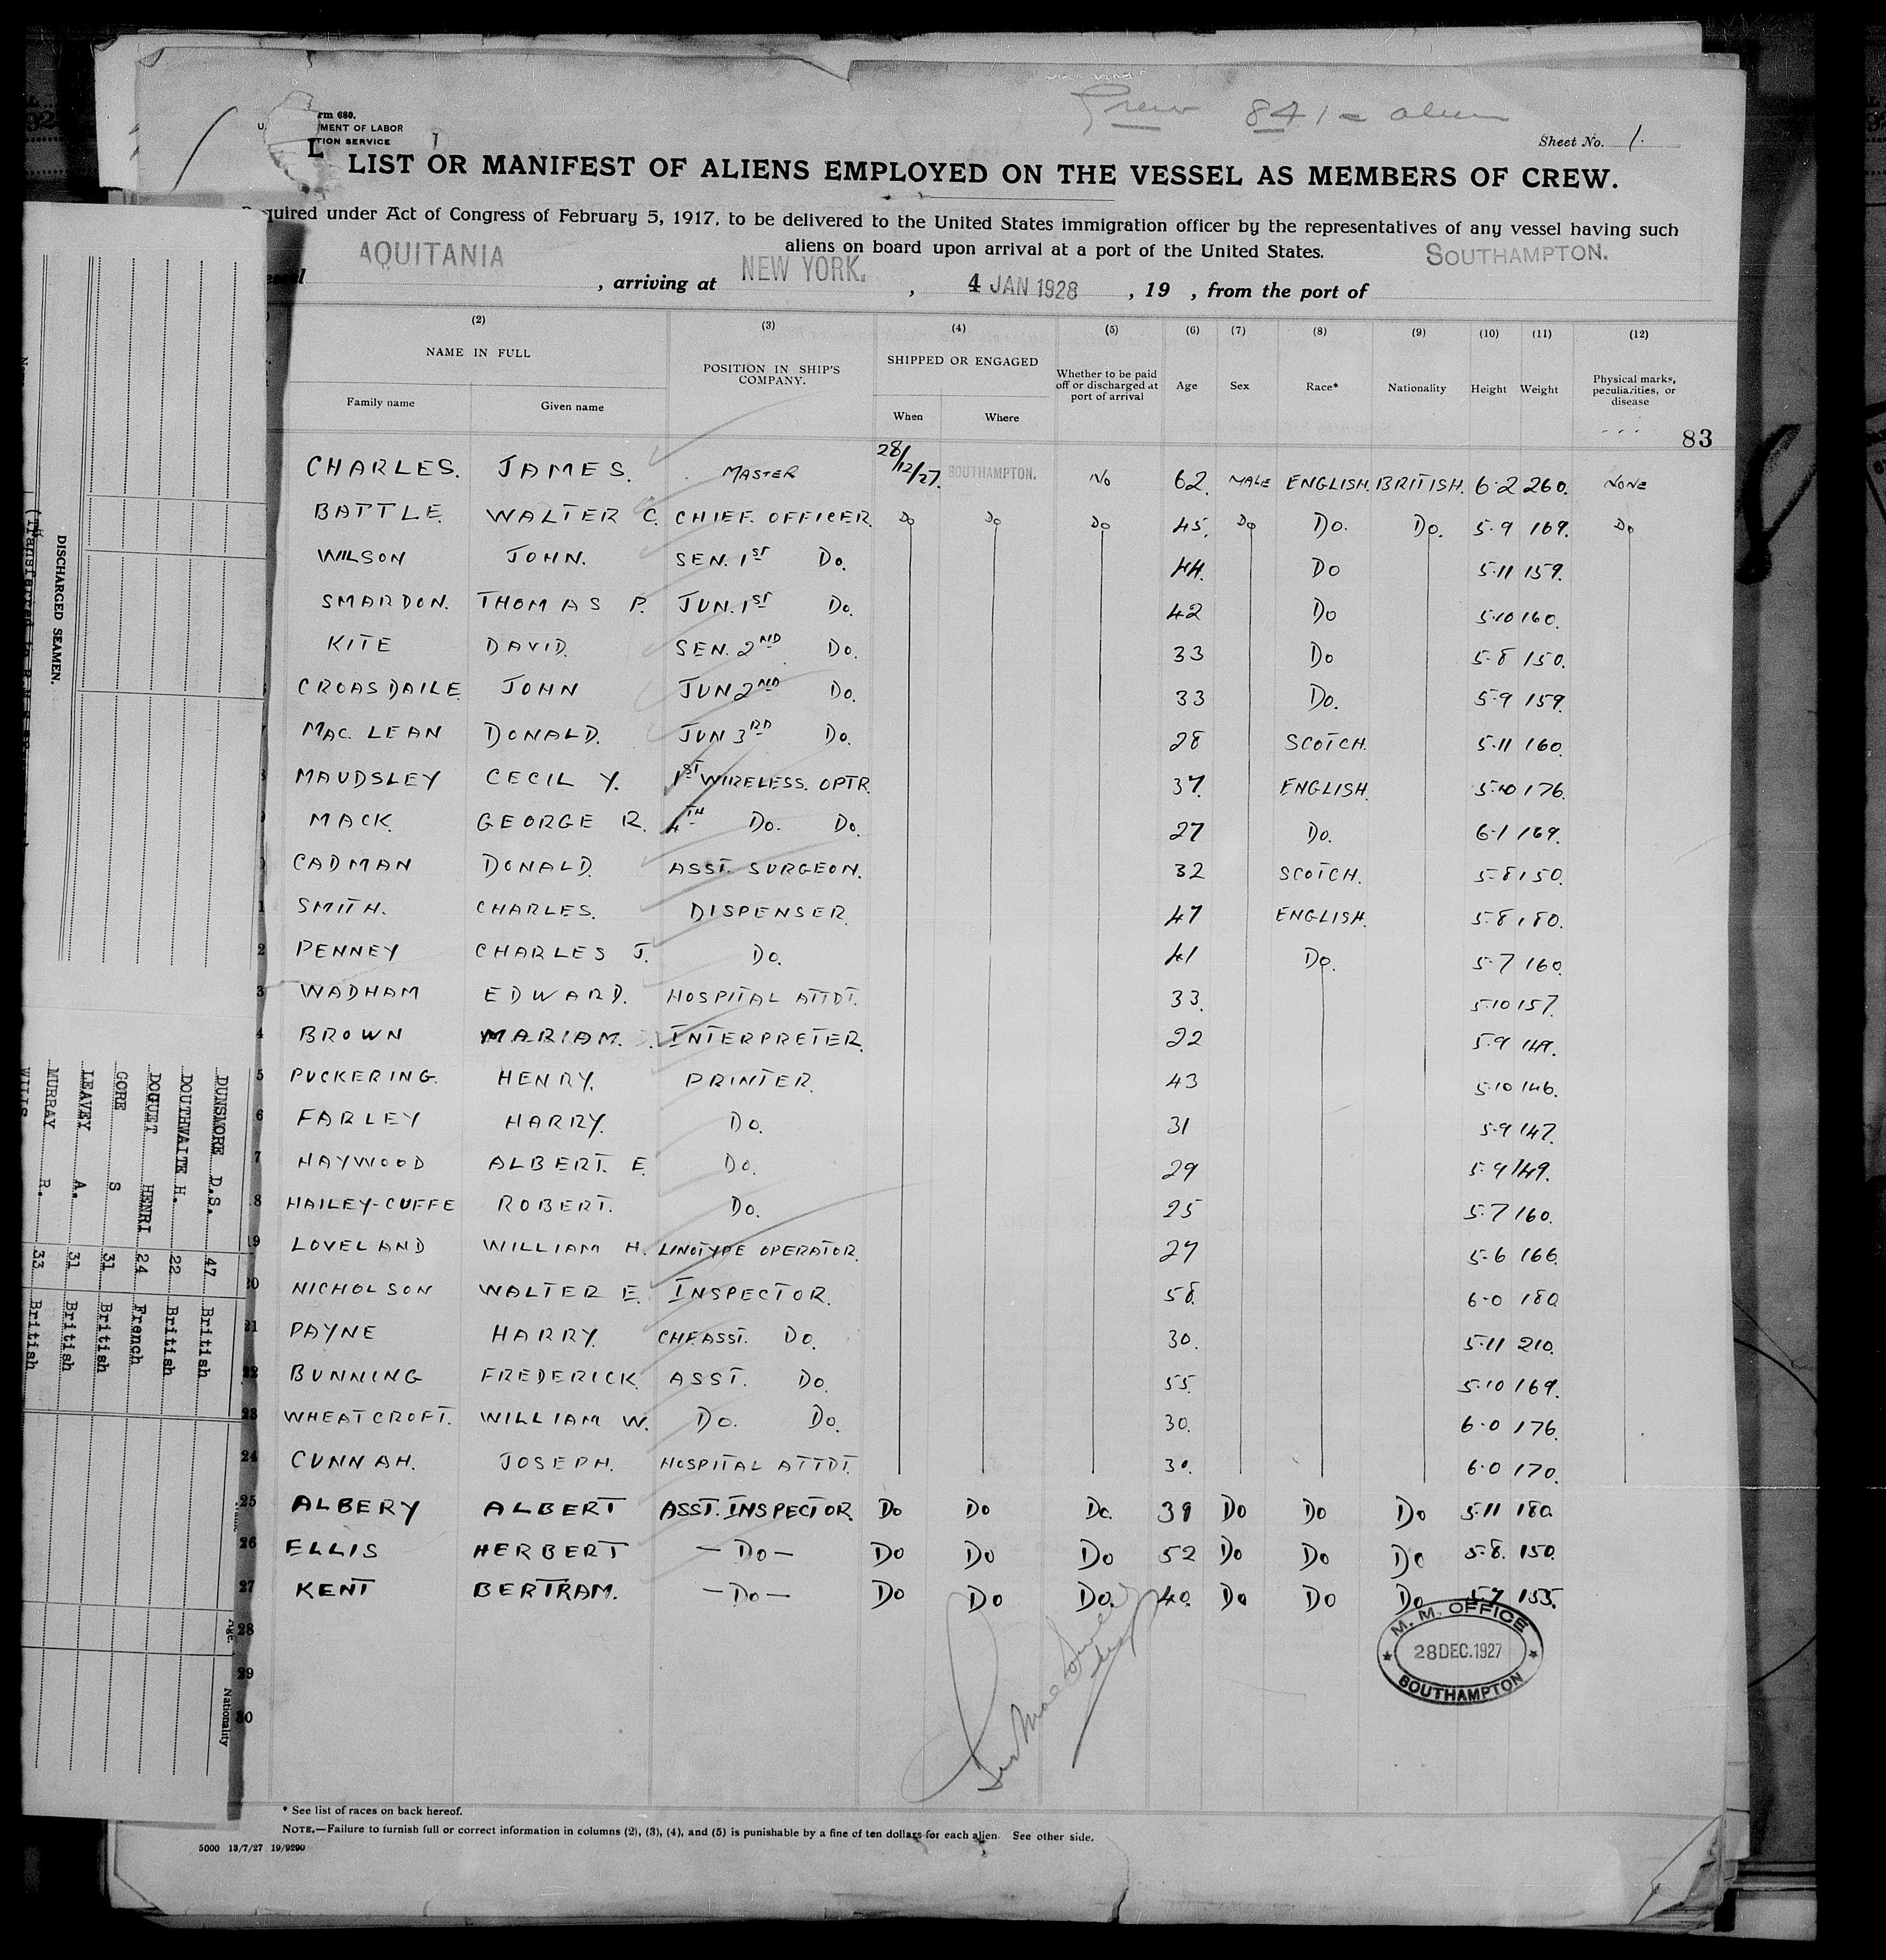 Crew 841 = alien
rm 680.
MENT OF LABOR
TION SERVICE
Sheet No. 1.
LIST OR MANIFEST OF ALIENS EMPLOYED ON THE VESSEL AS MEMBERS OF CREW.
quired under Act of Congress of February 5, 1917, to be delivered to the United States immigration officer by the representatives of any vessel having such
aliens on board upon arrival at a port of the United States.
AQUITANIA , arriving at NEW YORK. , 4 JAN 1928 , 19 , from the port of SOUTHAMPTON.
(2) (3) (4) (5) (6) (7) (8) (9) (10) (11) (12)
NAME IN FULL POSITION IN SHIP'S COMPANY. SHIPPED OR ENGAGED Whether to be paid off or discharged at port of arrival Age Sex Race* Nationality Height Weight Physical marks, peculiarities, or disease
Family name Given name When Where
83
CHARLES. JAMES. MASTER 28/12/27. SOUTHAMPTON. NO 62. MALE ENGLISH. BRITISH. 6-2 260. NONE
BATTLE. WALTER C. CHIEF. OFFICER. Do Do Do 45. Do Do. Do. 5-9 169. Do
WILSON JOHN. SEN. 1ST Do. 44. Do 5-11 159.
SMARDON. THOMAS P. JUN. 1ST Do. 42 Do 5-10 160.
KITE DAVID. SEN. 2ND Do. 33 Do 5-8 150.
CROASDAILE JOHN JUN 2ND Do. 33 Do. 5-9 159.
MAC. LEAN DONALD. JUN 3RD Do. 28 SCOTCH. 5-11 160.
MAUDSLEY CECIL Y. 1ST WIRELESS. OPTR. 37. ENGLISH. 5-10 176.
MACK. GEORGE R. 4TH Do. Do. 27 Do. 6-1 169.
CADMAN DONALD. ASST. SURGEON. 32 SCOTCH. 5-8 150.
1 SMITH. CHARLES. DISPENSER. 47 ENGLISH. 5-8 180.
2 PENNEY CHARLES J. Do. 41 Do. 5-7 160.
3 WADHAM EDWARD. HOSPITAL ATTDT. 33. 5-10 157.
4 BROWN MARIAM. INTERPRETER. 22 5-9 149.
5 PUCKERING. HENRY. PRINTER. 43 5-10 146.
6 FARLEY HARRY. Do. 31 5-9 147.
7 HAYWOOD ALBERT. E. Do. 29 5-9 149.
8 HAILEY-CUFFE ROBERT. Do. 25 5-7 160.
19 LOVELAND WILLIAM H. LINOTYPE OPERATOR. 27 5-6 166.
20 NICHOLSON WALTER E. INSPECTOR. 58. 6-0 180.
21 PAYNE HARRY. CHF. ASST. Do. 30. 5-11 210.
22 BUNNING FREDERICK. ASST. Do. 55. 5-10 169.
23 WHEATCROFT. WILLIAM W. Do. Do. 30. 6-0 176.
24 CUNNAH. JOSEPH. HOSPITAL ATTDT. 30. 6-0 170.
25 ALBERY ALBERT ASST. INSPECTOR. Do Do Do. 39 Do Do Do 5-11 180.
26 ELLIS HERBERT — Do — Do Do Do 52 Do Do Do 5-8. 150.
27 KENT BERTRAM. — Do — Do Do Do. 40. Do Do Do 5-7 155.
28
29
30
M. M. OFFICE
28 DEC. 1927
SOUTHAMPTON
* See list of races on back hereof.
NOTE.—Failure to furnish full or correct information in columns (2), (3), (4), and (5) is punishable by a fine of ten dollars for each alien. See other side.
5000 13/7/27 19/9290
DISCHARGED SEAMEN.
DUNSMORE D.S. 47 British
DOUTHWAITE H. 22 British
DOGUET HENRI 24 French
GORE S 31 British
LEAVEY A. 31 British
MURRAY R. 33 British
Age. Nationality